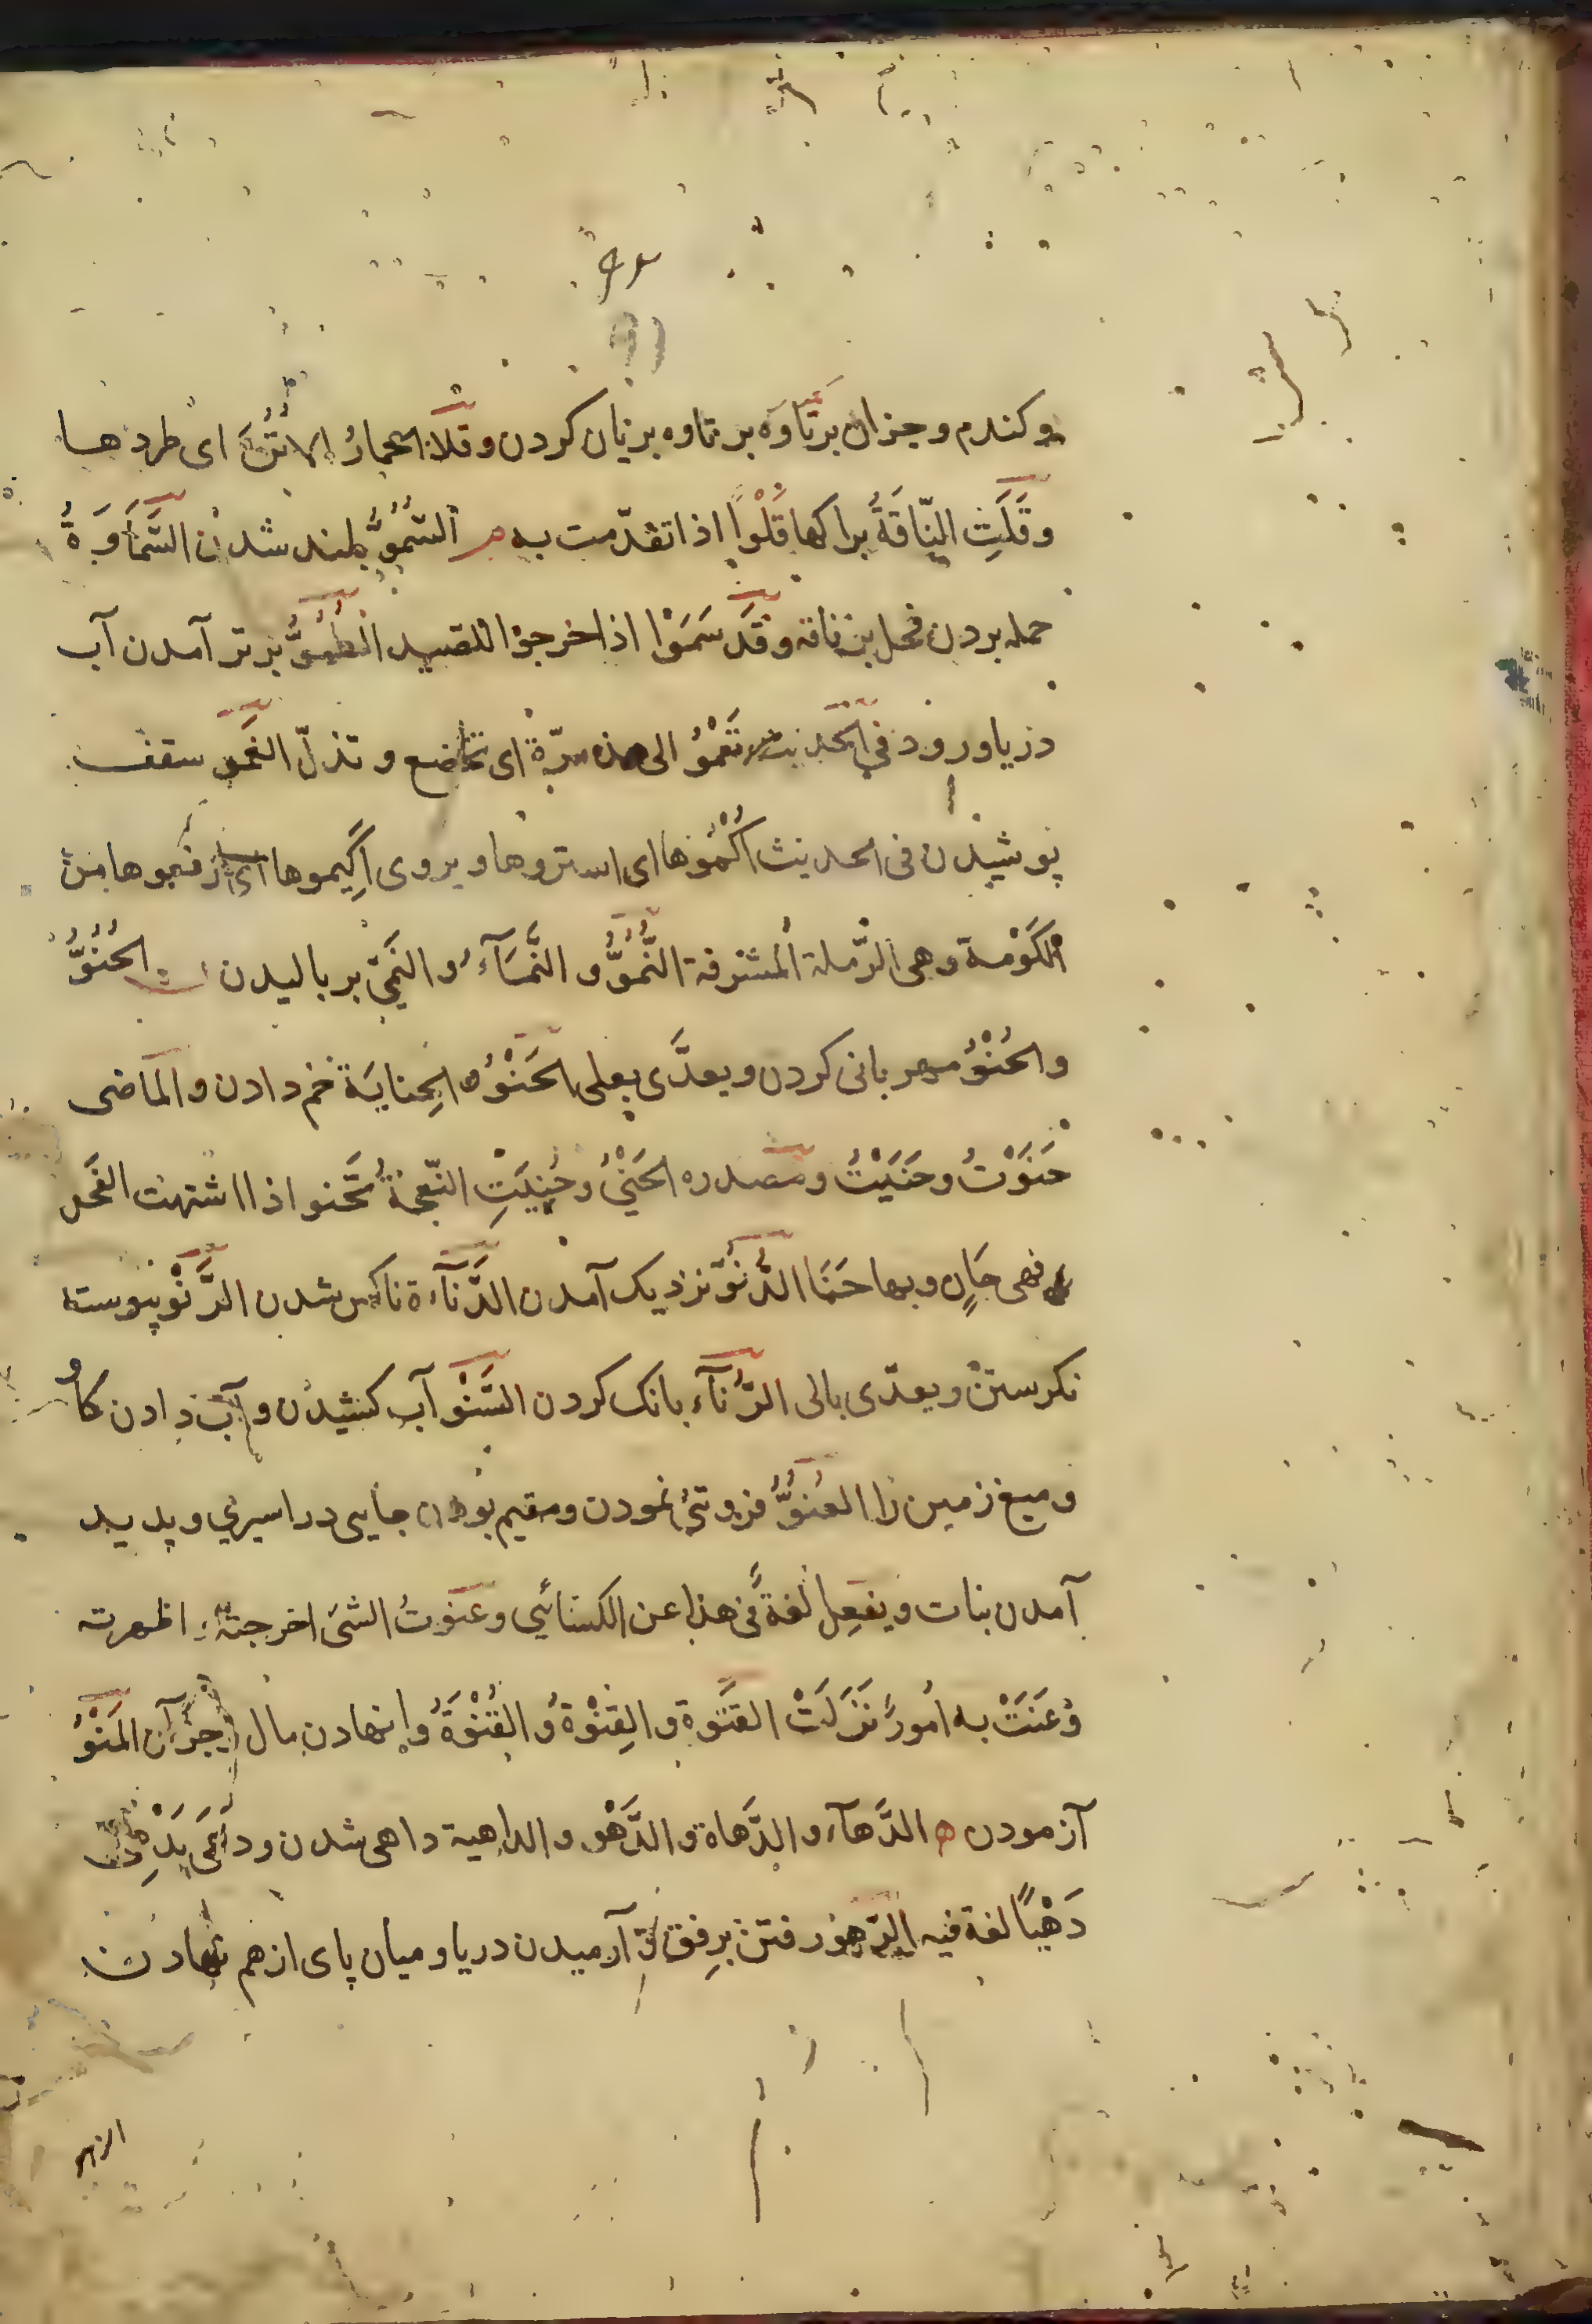 وكندم وجزان برتاوه برتاوه بریان کردن وقلا الحمارُ الاتُنَ ای طردها
وقَلَتِ النّاقةُ براكبها قَلْوًا اذا تقدّمت به م السُّمُوُّ بلند شدن السَّماوَةُ
حمله بردن فحل بر ناقه وقَد سَمَوْا اذا خرجوا للصيد الطُّمُوُّ برتر آمدن آب
دریا ورود فی الحدیث تَعْمُوُ الی هذه مرّةً ای تخاضع وتذلّ الغَمو سقف
پوشیدن فی الحدیث اكْمُوها ای استروها ویروی اَكيموها ای ارفعوها من
الكَوْمة وهی الرّملة المُشرفة النُّمُوُّ والنَّمَآءُ والنَّمیُ بربالیدن الحُنُوُّ
والحُنْوُ مهربانی کردن ویعدَّی بعلی الحَنْوُ والحِنایَةُ خم دادن والماضی
حَنَوْتُ وحَنَيْتُ ومصدره الحَنْیُ وحُنِيَتِ النّعجةُ تَحنو اذا اشتهت الفحل
فهی حَانٍ وبها حَنَا الدُّنوُّ نزدیک آمدن الدَّنآءة ناکس شدن الرَّنْوُ پیوسته
نکرستن ویعدّی بالی الرُّنآء بانک کردن السَّنْو آب کشیدن وآب دادن کاو
ومیغ زمین را العُنوُّ فروتنی نمودن ومقیم بودن جایی در اسیری وپدید
آمدن نبات ویفعِل لغةٌ فی هذا عن الكسائی وعنوتُ الشیَ اخرجتهُ اظهرته
وعَنَتْ به اُمورٌ نَزَلَتْ القَنوة والقِنْوة والقُنْوَةُ وانهادن مال وجز آن المَنْوُ
آزمودن ه الدَّهآء والدَّهاة والدَّهْو والداهية داهی شدن ودَهَی یَدْهی
دَهْيًا لغة فیه الرَّهوُ رفتن برِفق وآرمیدن دریا ومیان پای از هم نهادن